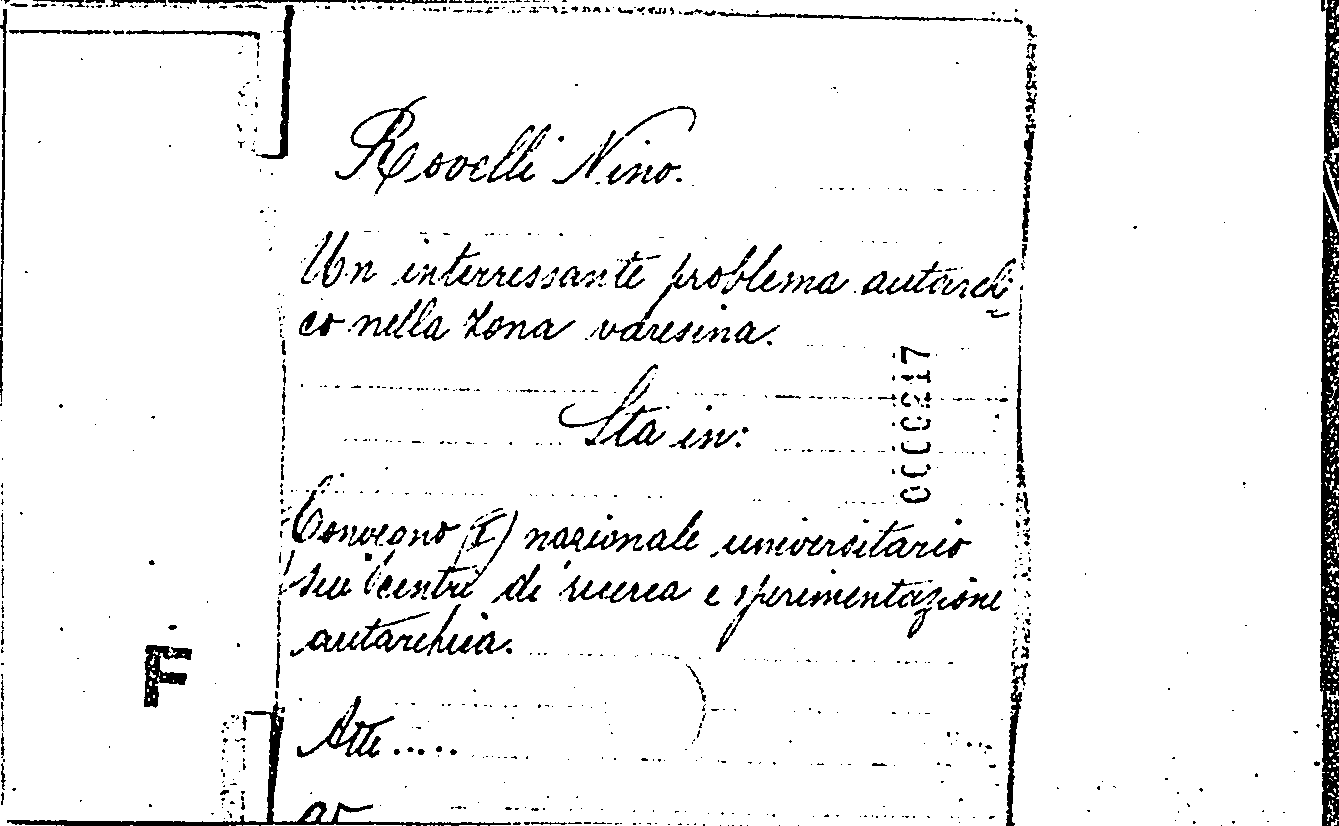 Rovelli Nino.
Un interressante problema autarchi
co nella zona varesina.
0000217
Sta in:
Convegno (I) nazionale universitario
sui centri di ricerca e sperimentazione
autarchica.
F
Atti.....